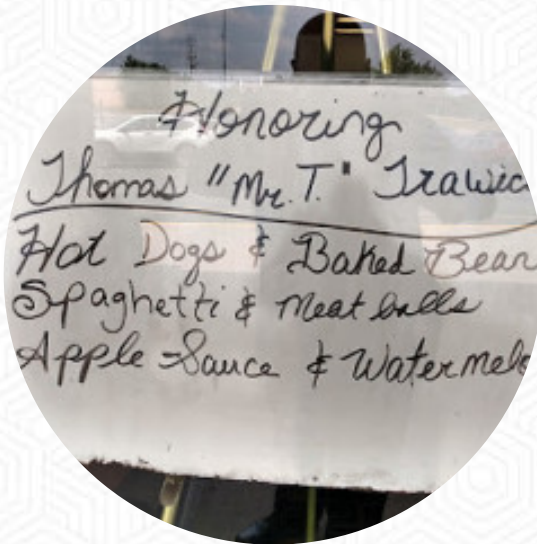 Honoring
Thomas "Mr. T." Trawic
Hot Dogs & Baked Bean
Spaghetti & Meatballs
Apple Sauce & Watermel